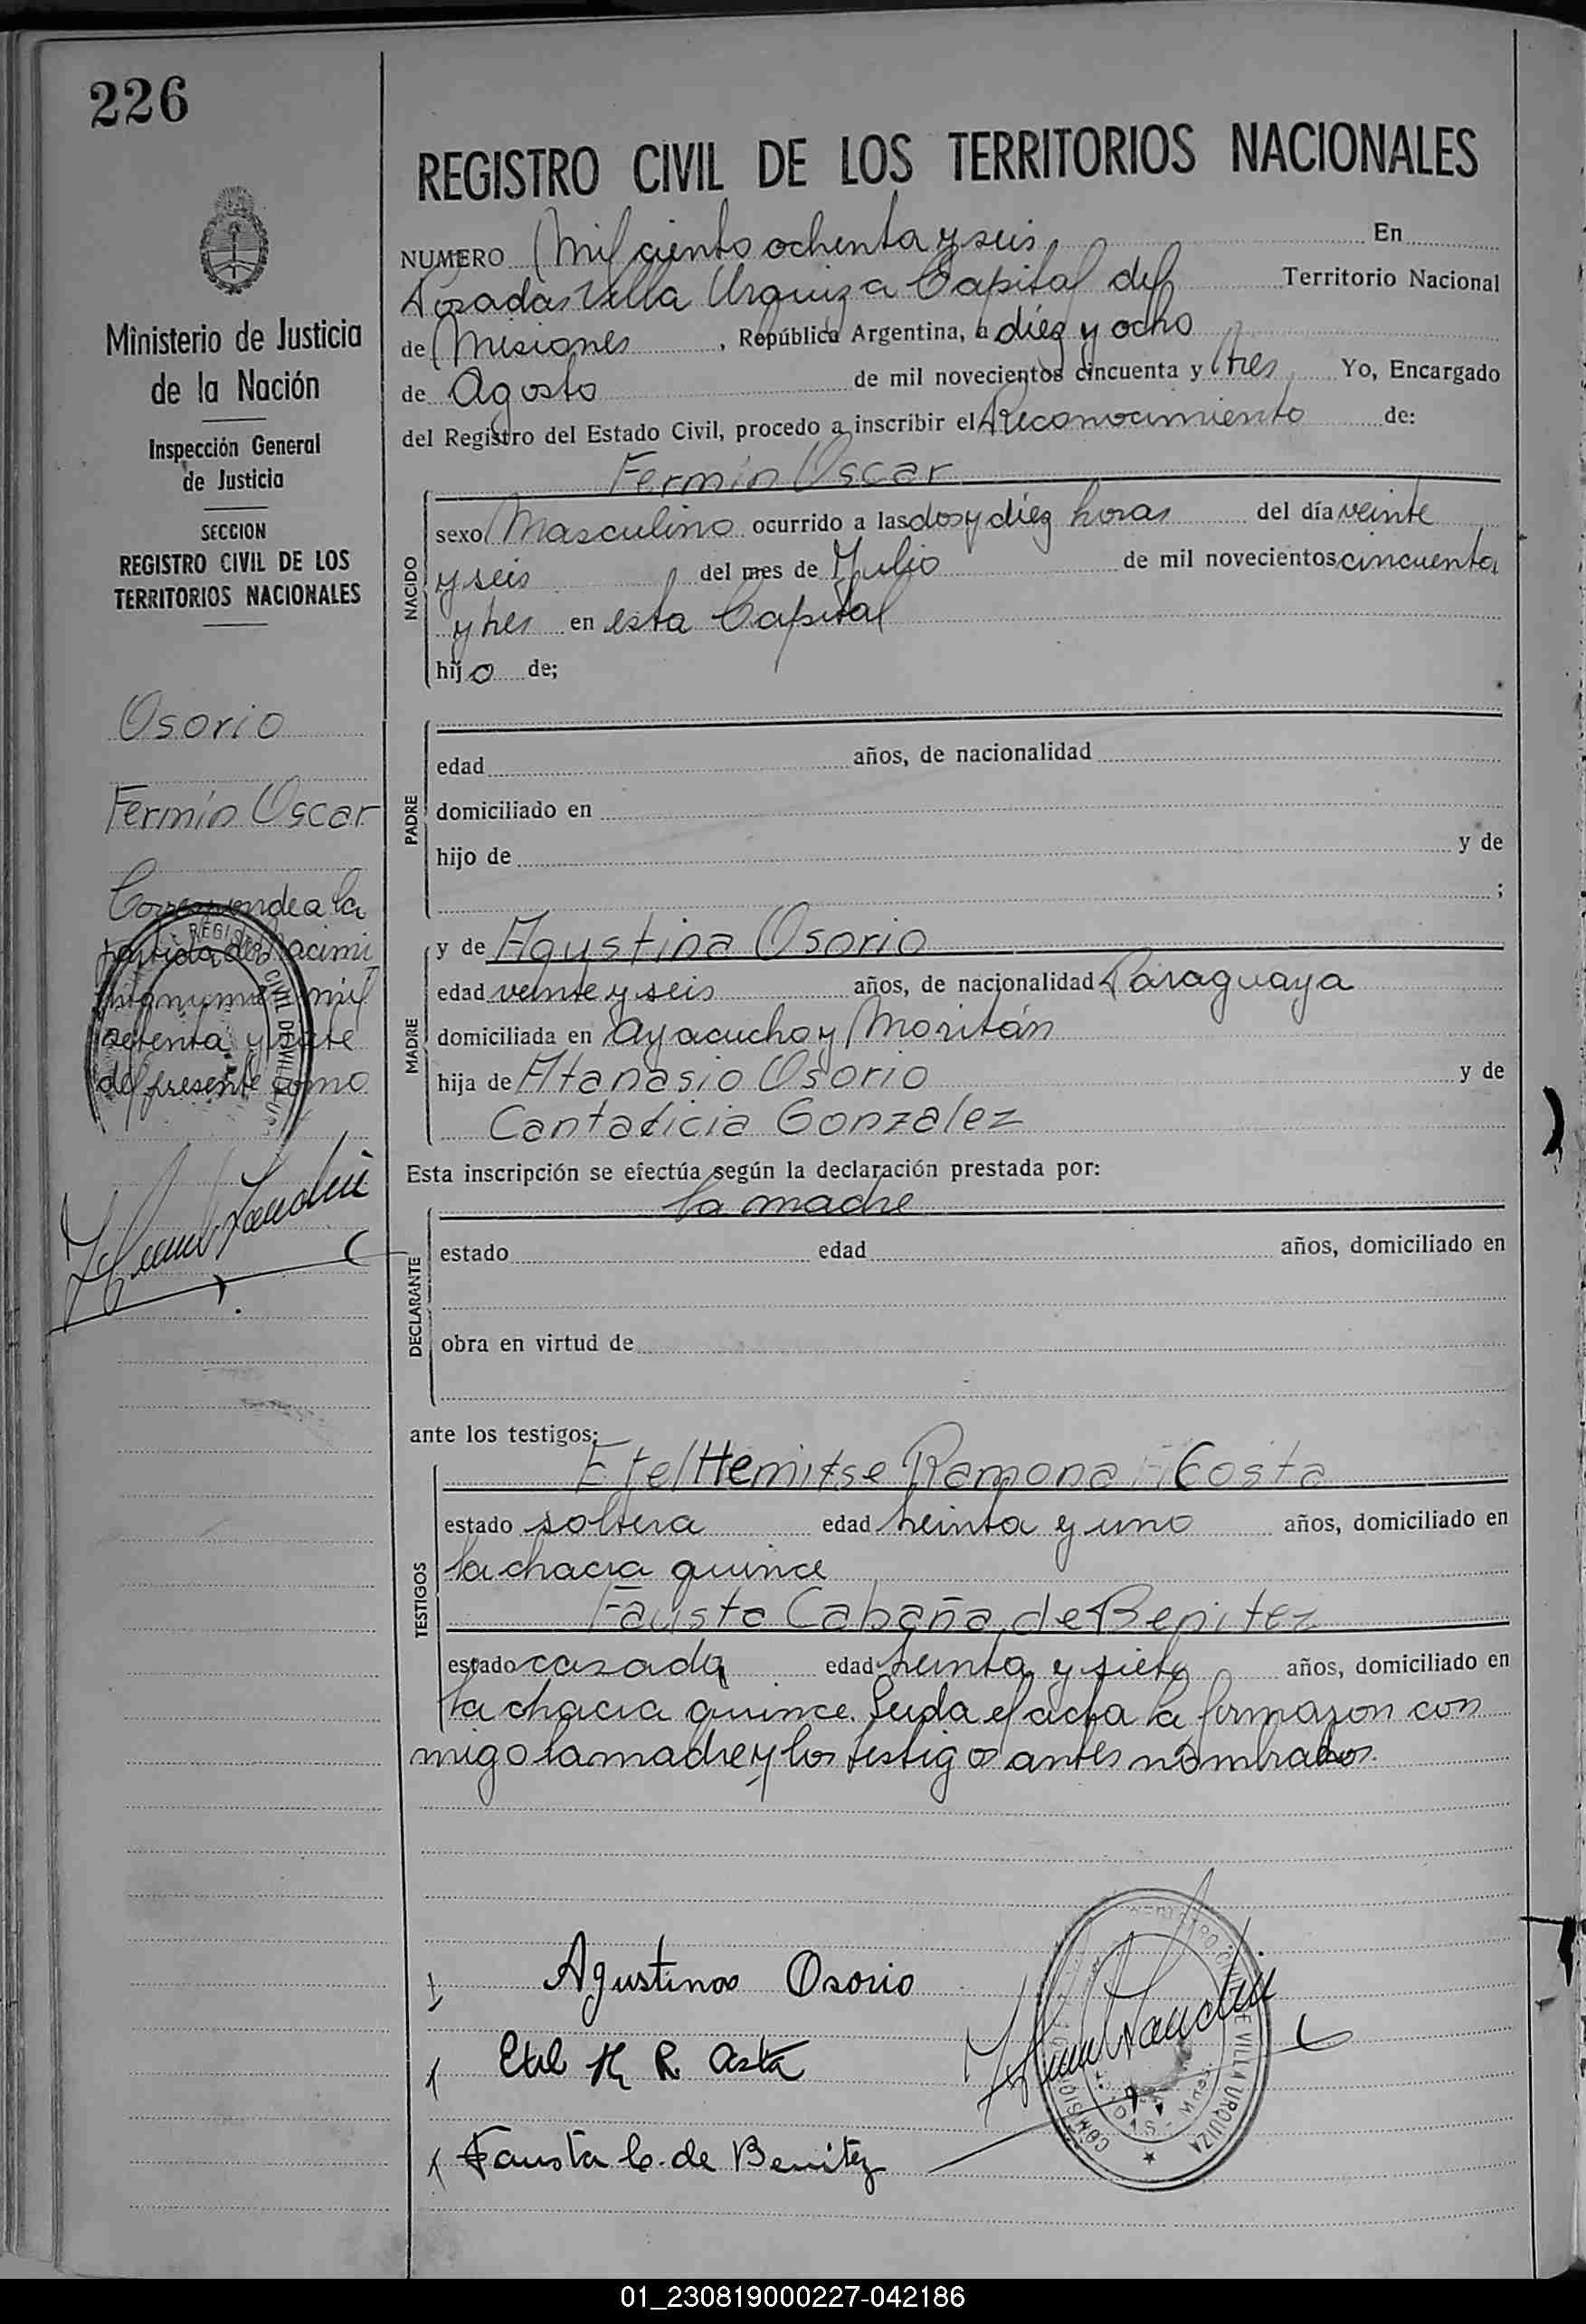 226
REGISTRO CIVIL DE LOS TERRITORIOS NACIONALES
NUMERO Mil ciento ochenta y seis En
Posadas Villa Urquiza Capital del Territorio Nacional
de Misiones, República Argentina, a diez y ocho
de Agosto de mil novecientos cincuenta y tres Yo, Encargado
del Registro del Estado Civil, procedo a inscribir el Reconocimiento de:
Fermin Oscar
NACIDO
sexo Masculino ocurrido a las dos y diez horas del día veinte
y seis del mes de Julio de mil novecientos cincuenta
y tres en esta Capital
hijo de;
PADRE
edad años, de nacionalidad
domiciliado en
hijo de y de
;
MADRE
y de Agustina Osorio
edad veinte y seis años, de nacionalidad Paraguaya
domiciliada en Ayacucho y Moritán
hija de Atanasio Osorio y de
Gonzalez
Esta inscripción se efectúa según la declaración prestada por:
la madre
DECLARANTE
estado edad años, domiciliado en
obra en virtud de
ante los testigos:
TESTIGOS
Etel Ramona Acosta
estado soltera edad treinta y uno años, domiciliado en
la chacra quince
Fausta Cabaña de Benitez
estado casada edad treinta y siete años, domiciliado en
la chacra quince. Leida el acta la firmaron con
migo la madre y los testigos antes nombrados.
Agustina Osorio
Etel H. R. Acosta
Fausta C. de Benitez
REGISTRO CIVIL DE VILLA URQUIZA
Ministerio de Justicia
de la Nación
Inspección General
de Justicia
SECCION
REGISTRO CIVIL DE LOS
TERRITORIOS NACIONALES
Osorio
Fermín Oscar
Corresponde a la
partida de nacimi
mil
setenta y siete
del presente tomo
01_230819000227-042186